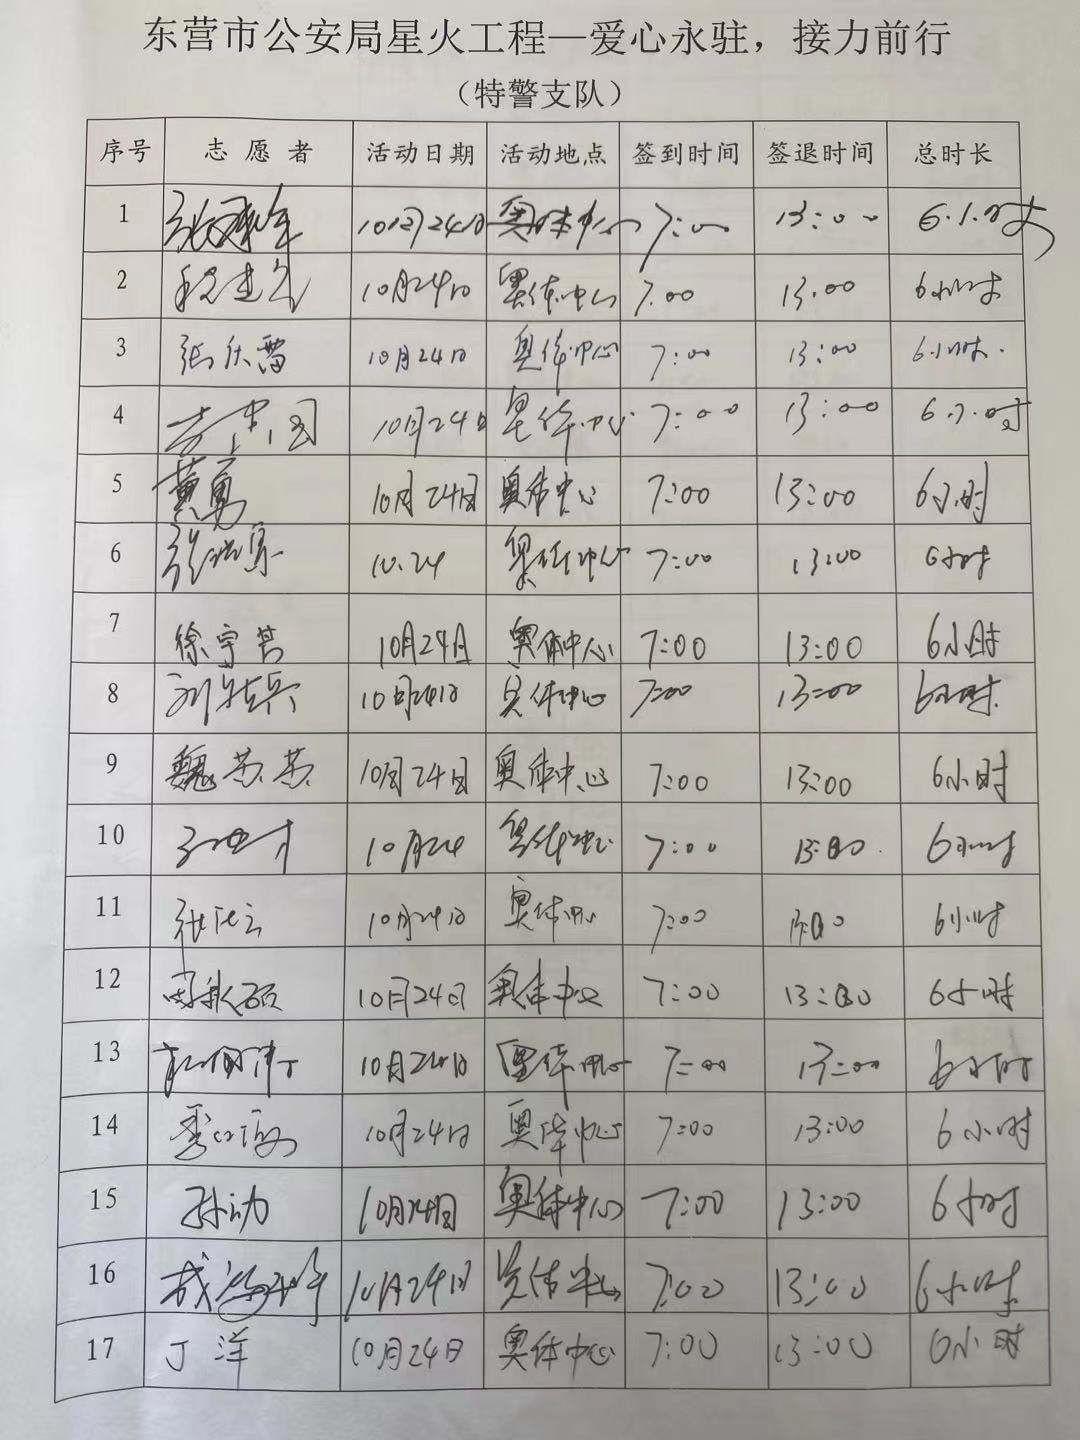 东营市公安局星火工程—爱心永驻，接力前行
（特警支队）
序号 志愿者 活动日期 活动地点 签到时间 签退时间 总时长
1 10月24日 奥体中心 7:00 13:00 6小时
2 10月24日 奥体中心 7:00 13:00 6小时
3 张庆雷 10月24日 奥体中心 7:00 13:00 6小时.
4 10月24日 奥体中心 7:00 13:00 6小时
5 黄勇 10月24日 奥体中心 7:00 13:00 6小时
6 10.24 奥体中心 7:00 13:00 6小时
7 徐宇 10月24日 奥体中心 7:00 13:00 6小时
8 10月24日 奥体中心 7:00 13:00 6小时
9 魏芸芸 10月24日 奥体中心 7:00 13:00 6小时
10 10月24 奥体中心 7:00 13:00 6小时
11 10月24日 奥体中心 7:00 6小时
12 10月24日 奥体中心 7:00 13:00 6小时
13 10月24日 奥体中心 7:00 13:00 6小时
14 10月24日 奥体中心 7:00 13:00 6小时
15 孙动 10月24日 奥体中心 7:00 13:00 6小时
16 10月24日 奥体中心 7:00 13:00 6小时
17 丁洋 10月24日 奥体中心 7:00 13:00 6小时